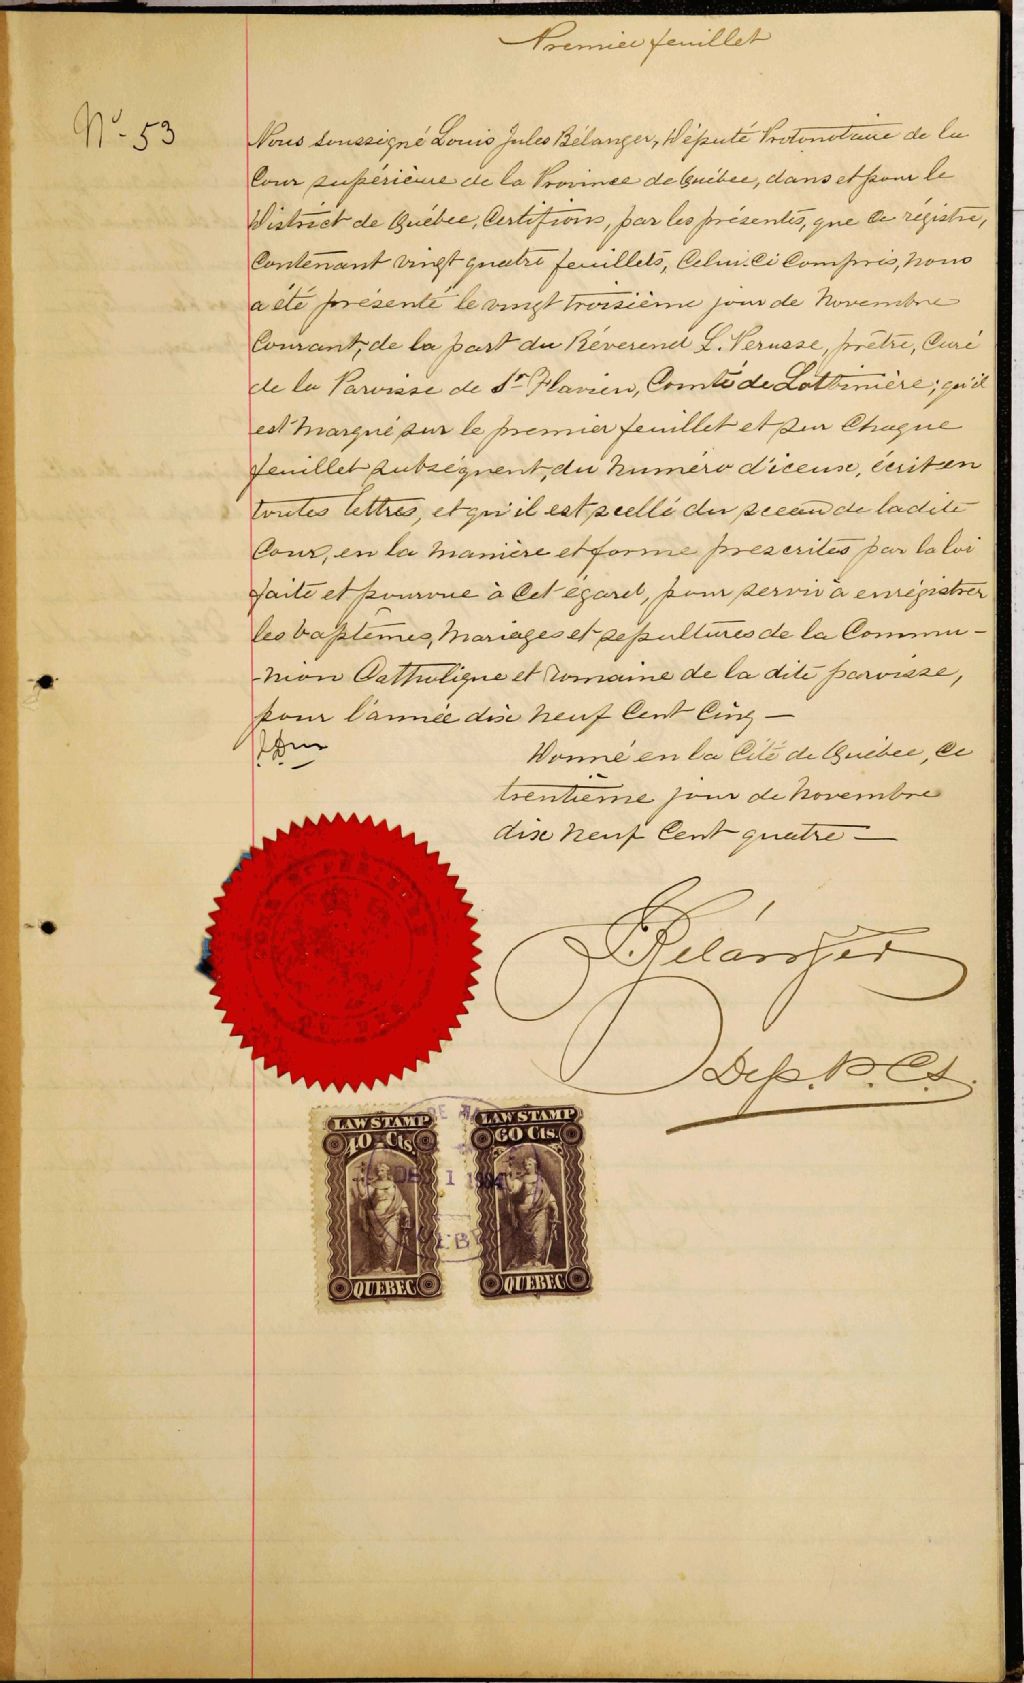 Premier feuillet
No. 53
Nous soussigné Louis Jules Bélanger, Député Protonotaire de la
Cour supérieure de la Province de Québec, dans et pour le
District de Québec, Certifions, par les présentes, que ce régistre,
Contenant vingt quatre feuillets, Celui-ci Compris, nous
a été présenté le vingt troisième jour de Novembre
Courant, de la part du Révérend L. Perusse, prêtre, Curé
de la Paroisse de St Flavien, Comté de Lotbinière; qu'il
est marqué sur le premier feuillet et sur Chaque
feuillet subséquent, du numéro d'iceux, écrit en
toutes lettres, et qu'il est scellé du sceau de la dite
Cour, en la manière et forme prescrites par la loi
faite et pourvue à Cet égard, pour servir à enrégistrer
les baptêmes, Mariages et sépultures de la Commu-
-nion Catholique et romaine de la dite paroisse,
pour l'année dix neuf Cent Cinq —
Donné en la Cité de Québec, Ce
trentième jour de Novembre
dix neuf Cent quatre —
COUR SUPERIEURE
QUEBEC
J. Bélanger
Dep. P. C. S.
LAW STAMP LAW STAMP
40 Cts. 60 Cts.
DEC 1 1904
QUEBEC
QUEBEC QUEBEC